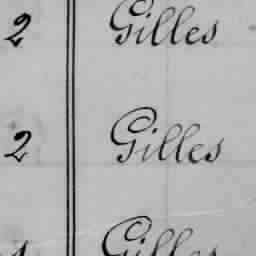 2 Gilles
2 Gilles
Gilles